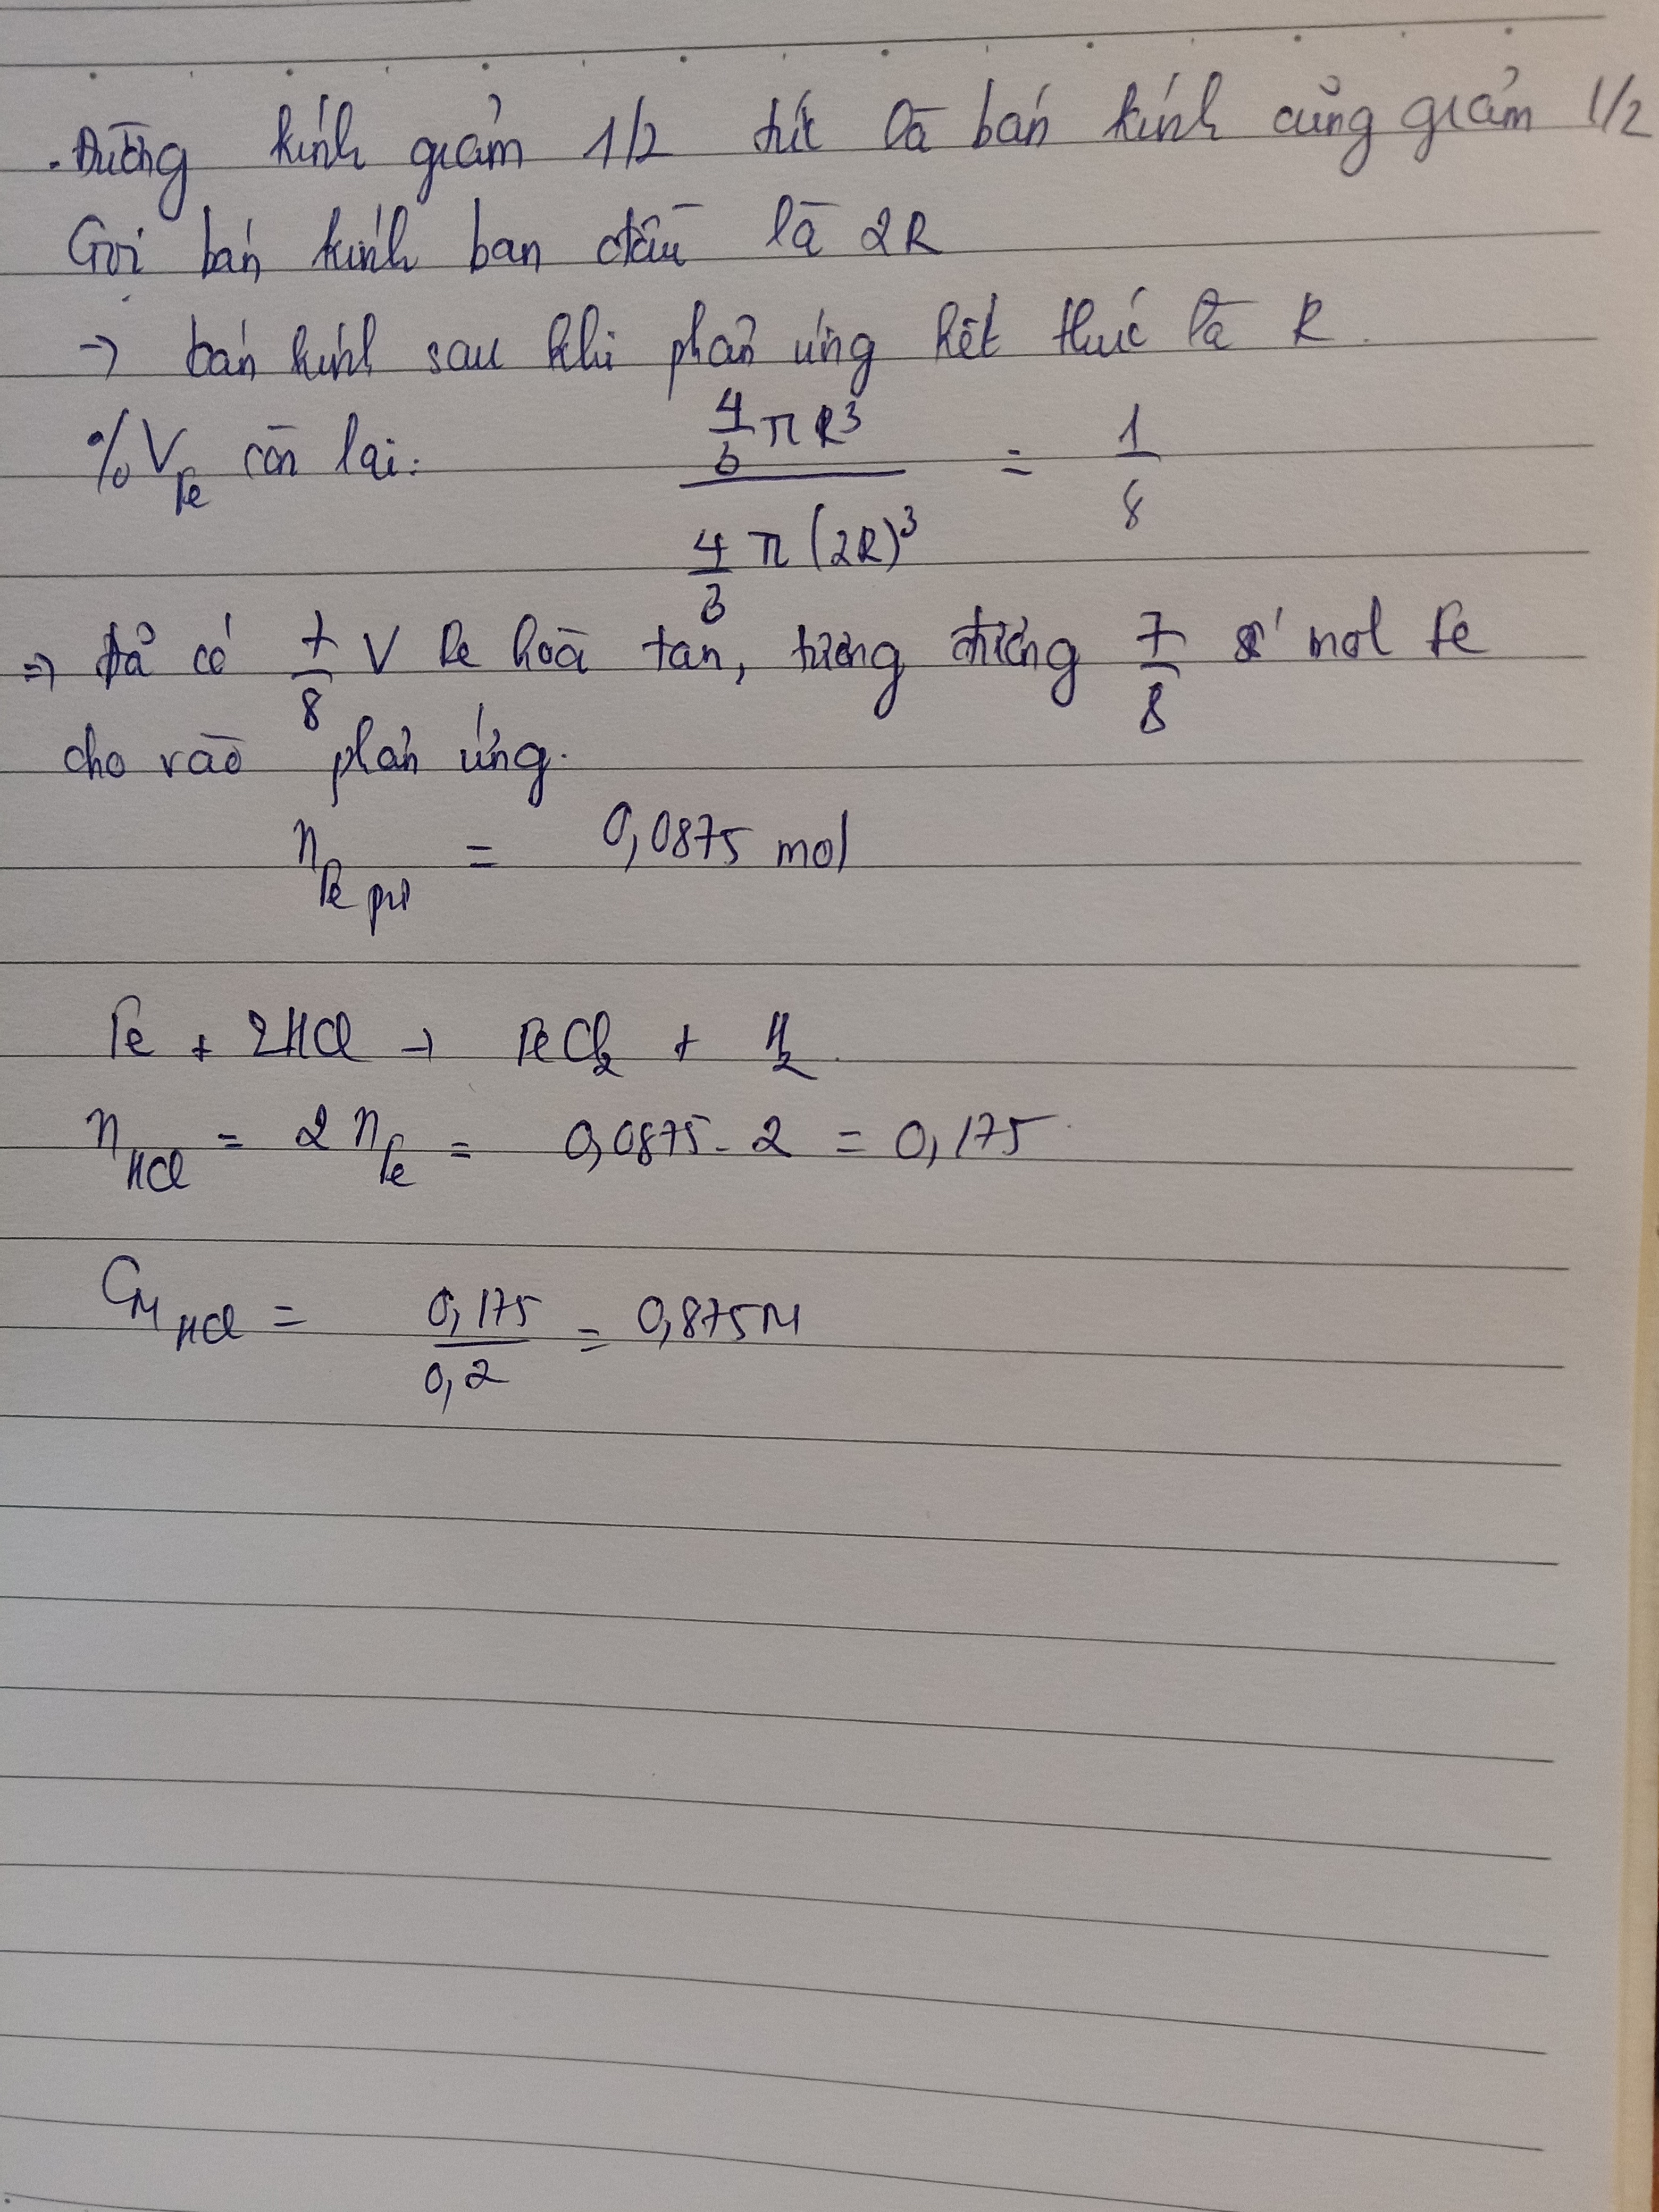 . Đường kính giảm 1/2 tức là bán kính cũng giảm 1/2
Gọi bán kính ban đầu là 2R
→ bán kính sau khi phản ứng kết thúc là R.
%V_Fe còn lại: (4/3 π R³) / (4/3 π (2R)³) = 1/8
⇒ Đã có 7/8 V Fe hoà tan, tương đương 7/8 số mol Fe
cho vào phản ứng.
n_Fe pư = 0,0875 mol
Fe + 2HCl → FeCl₂ + H₂.
n_HCl = 2 n_Fe = 0,0875 . 2 = 0,175
C_M HCl = 0,175 / 0,2 = 0,875M